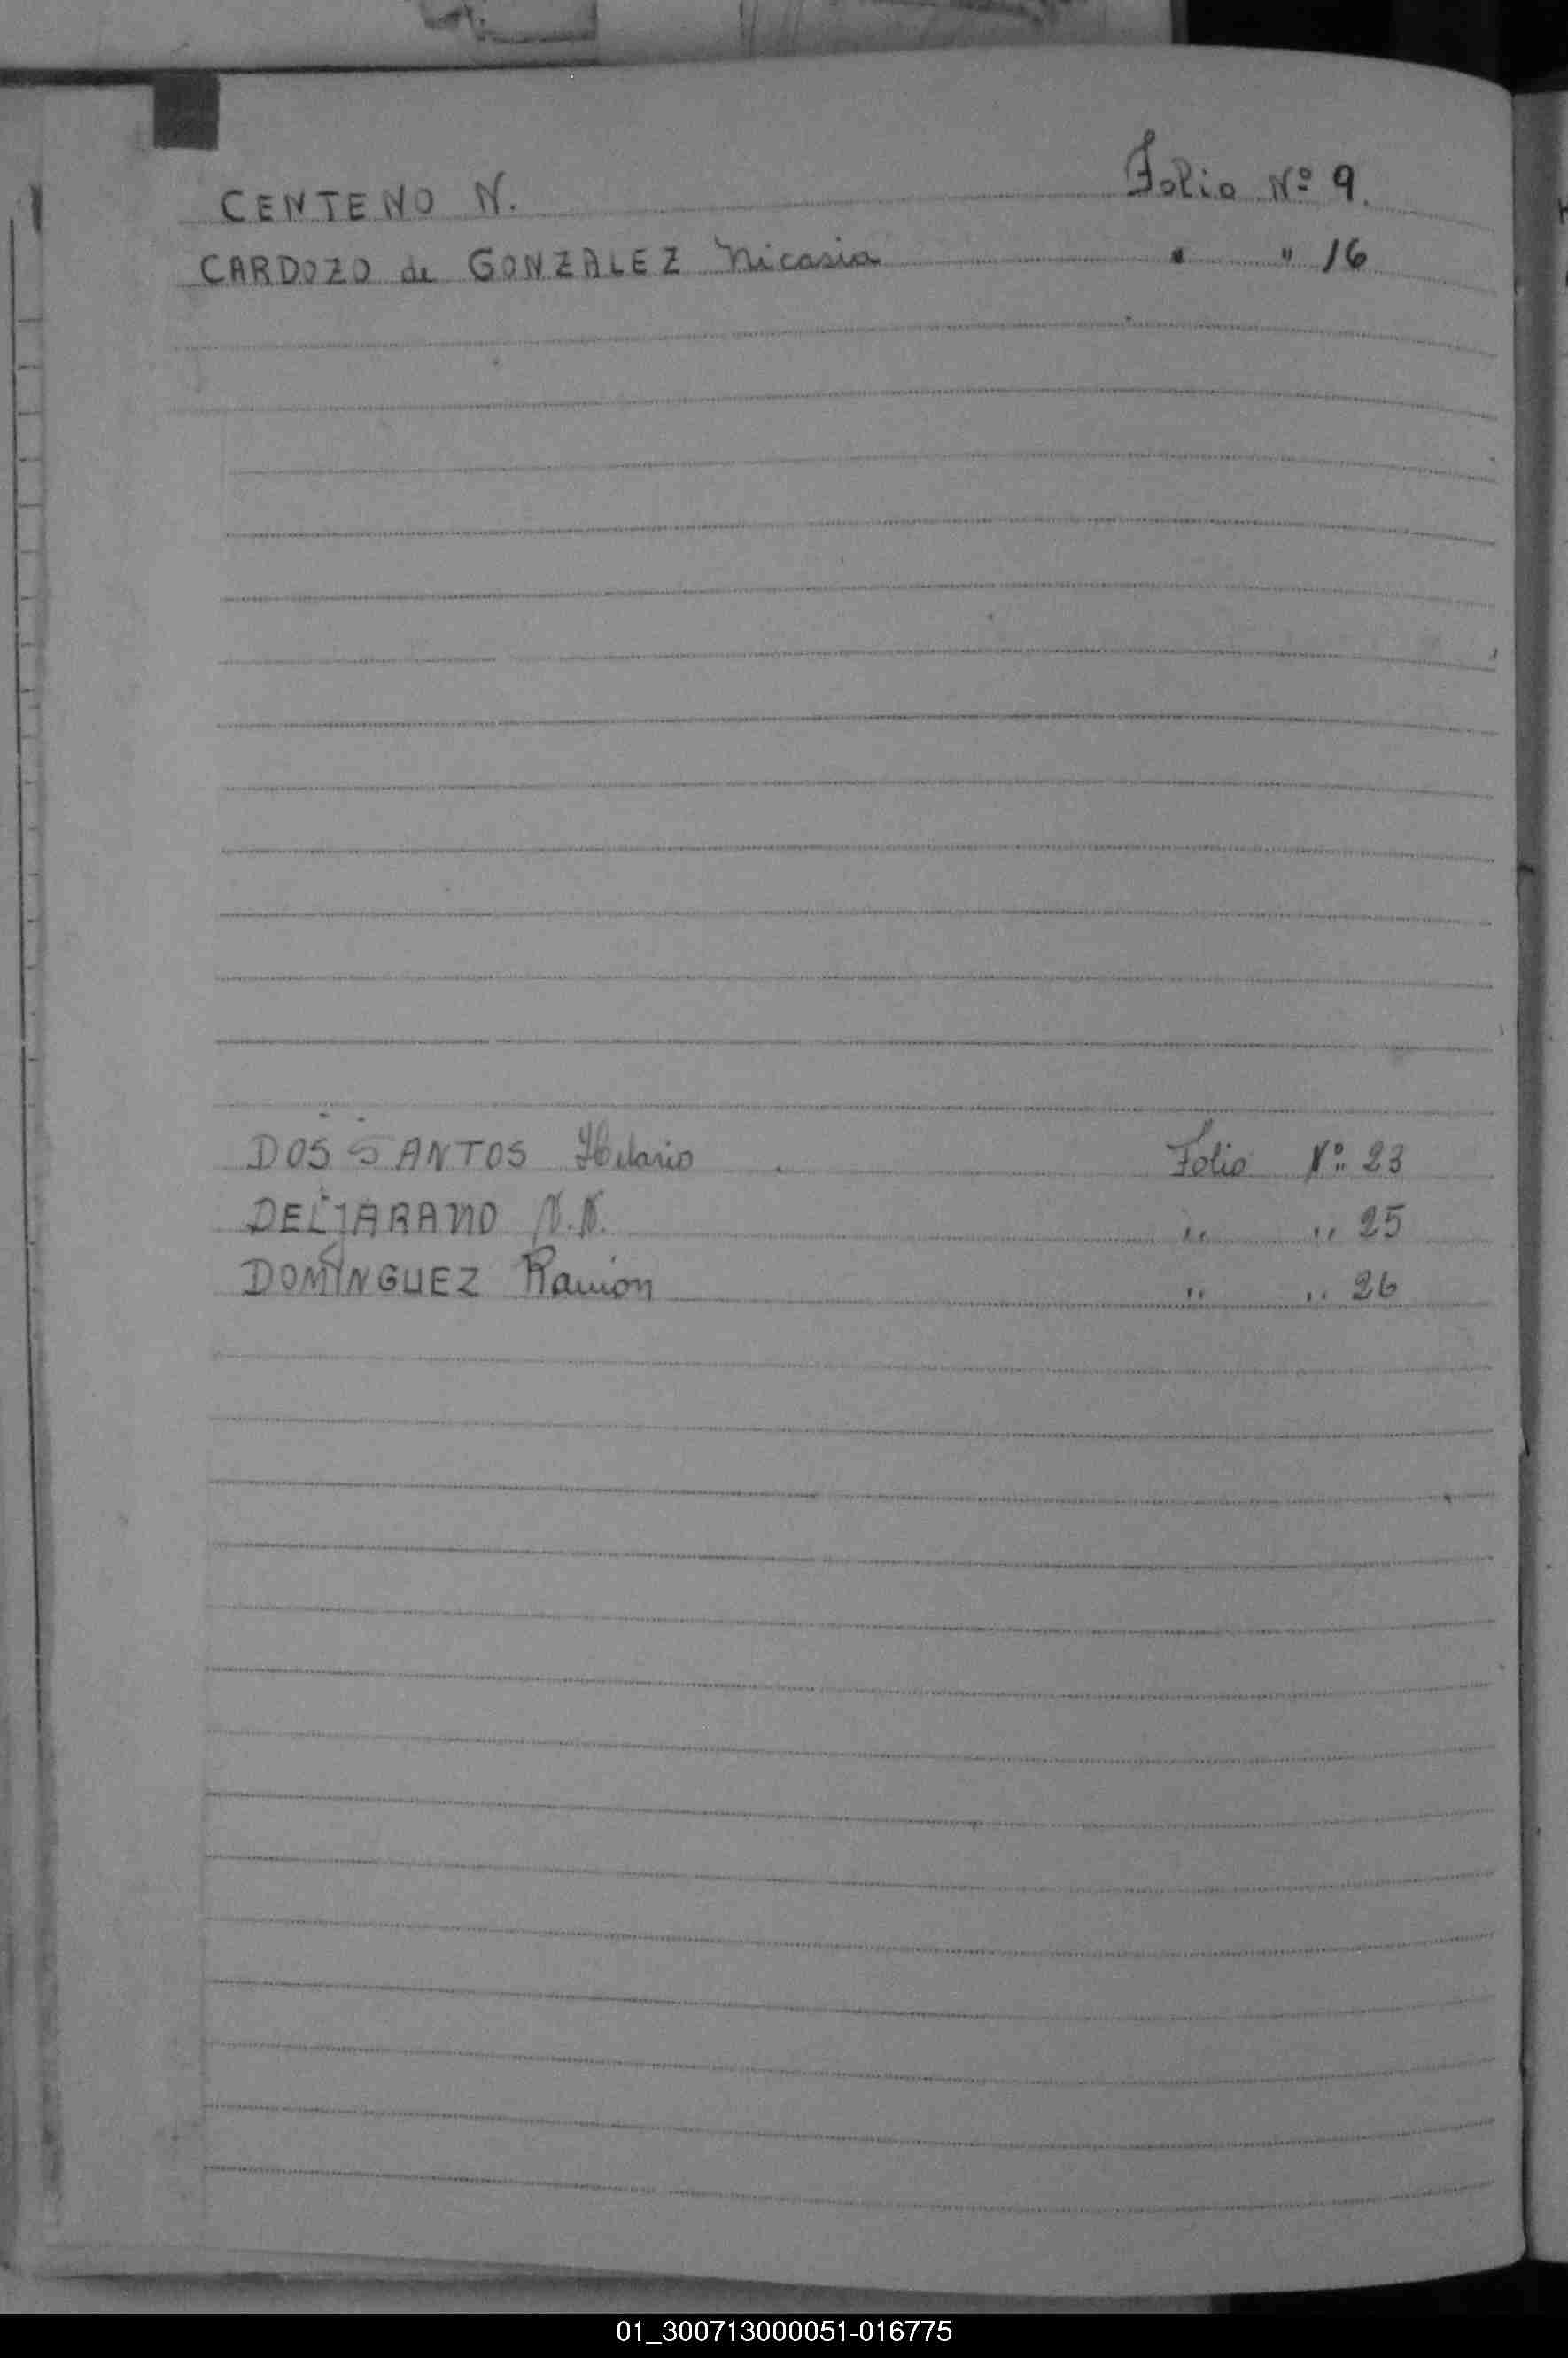 CENTENO N. Folio Nº 9.
CARDOZO de GONZALEZ Nicasia " " 16
DOS SANTOS Hilario Folio Nº 23
N.N. " " 25
DOMÍNGUEZ Ramón " " 26
01_300713000051-016775